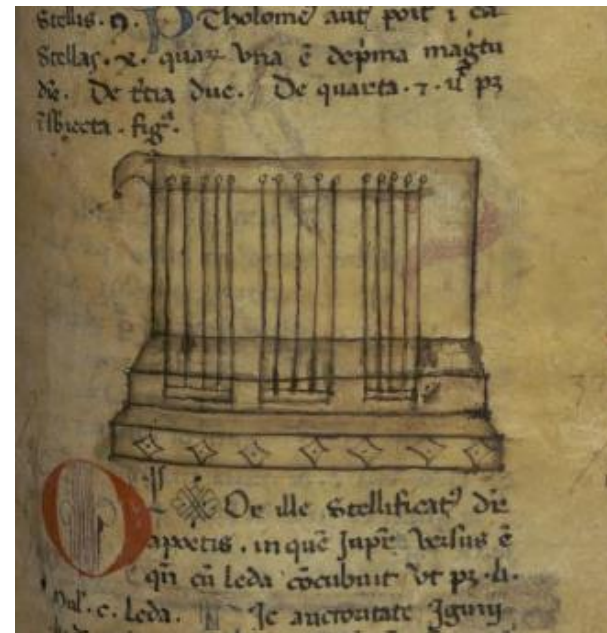 Stellis. Ptholome' aut' poīt ī ea
Stellas. x. quaꝝ Vna ē de p'ma magītu
dīe. De t'cia due. De quarta. 7. ut pꝫ
ī sbiecta. fig.
Olor ille Stellificat' dīr
apoetis. in quē Jupīr Versus ē
qn̄ cū leda cōcubuit Vt pꝫ. li.
c. leda. auctoritate